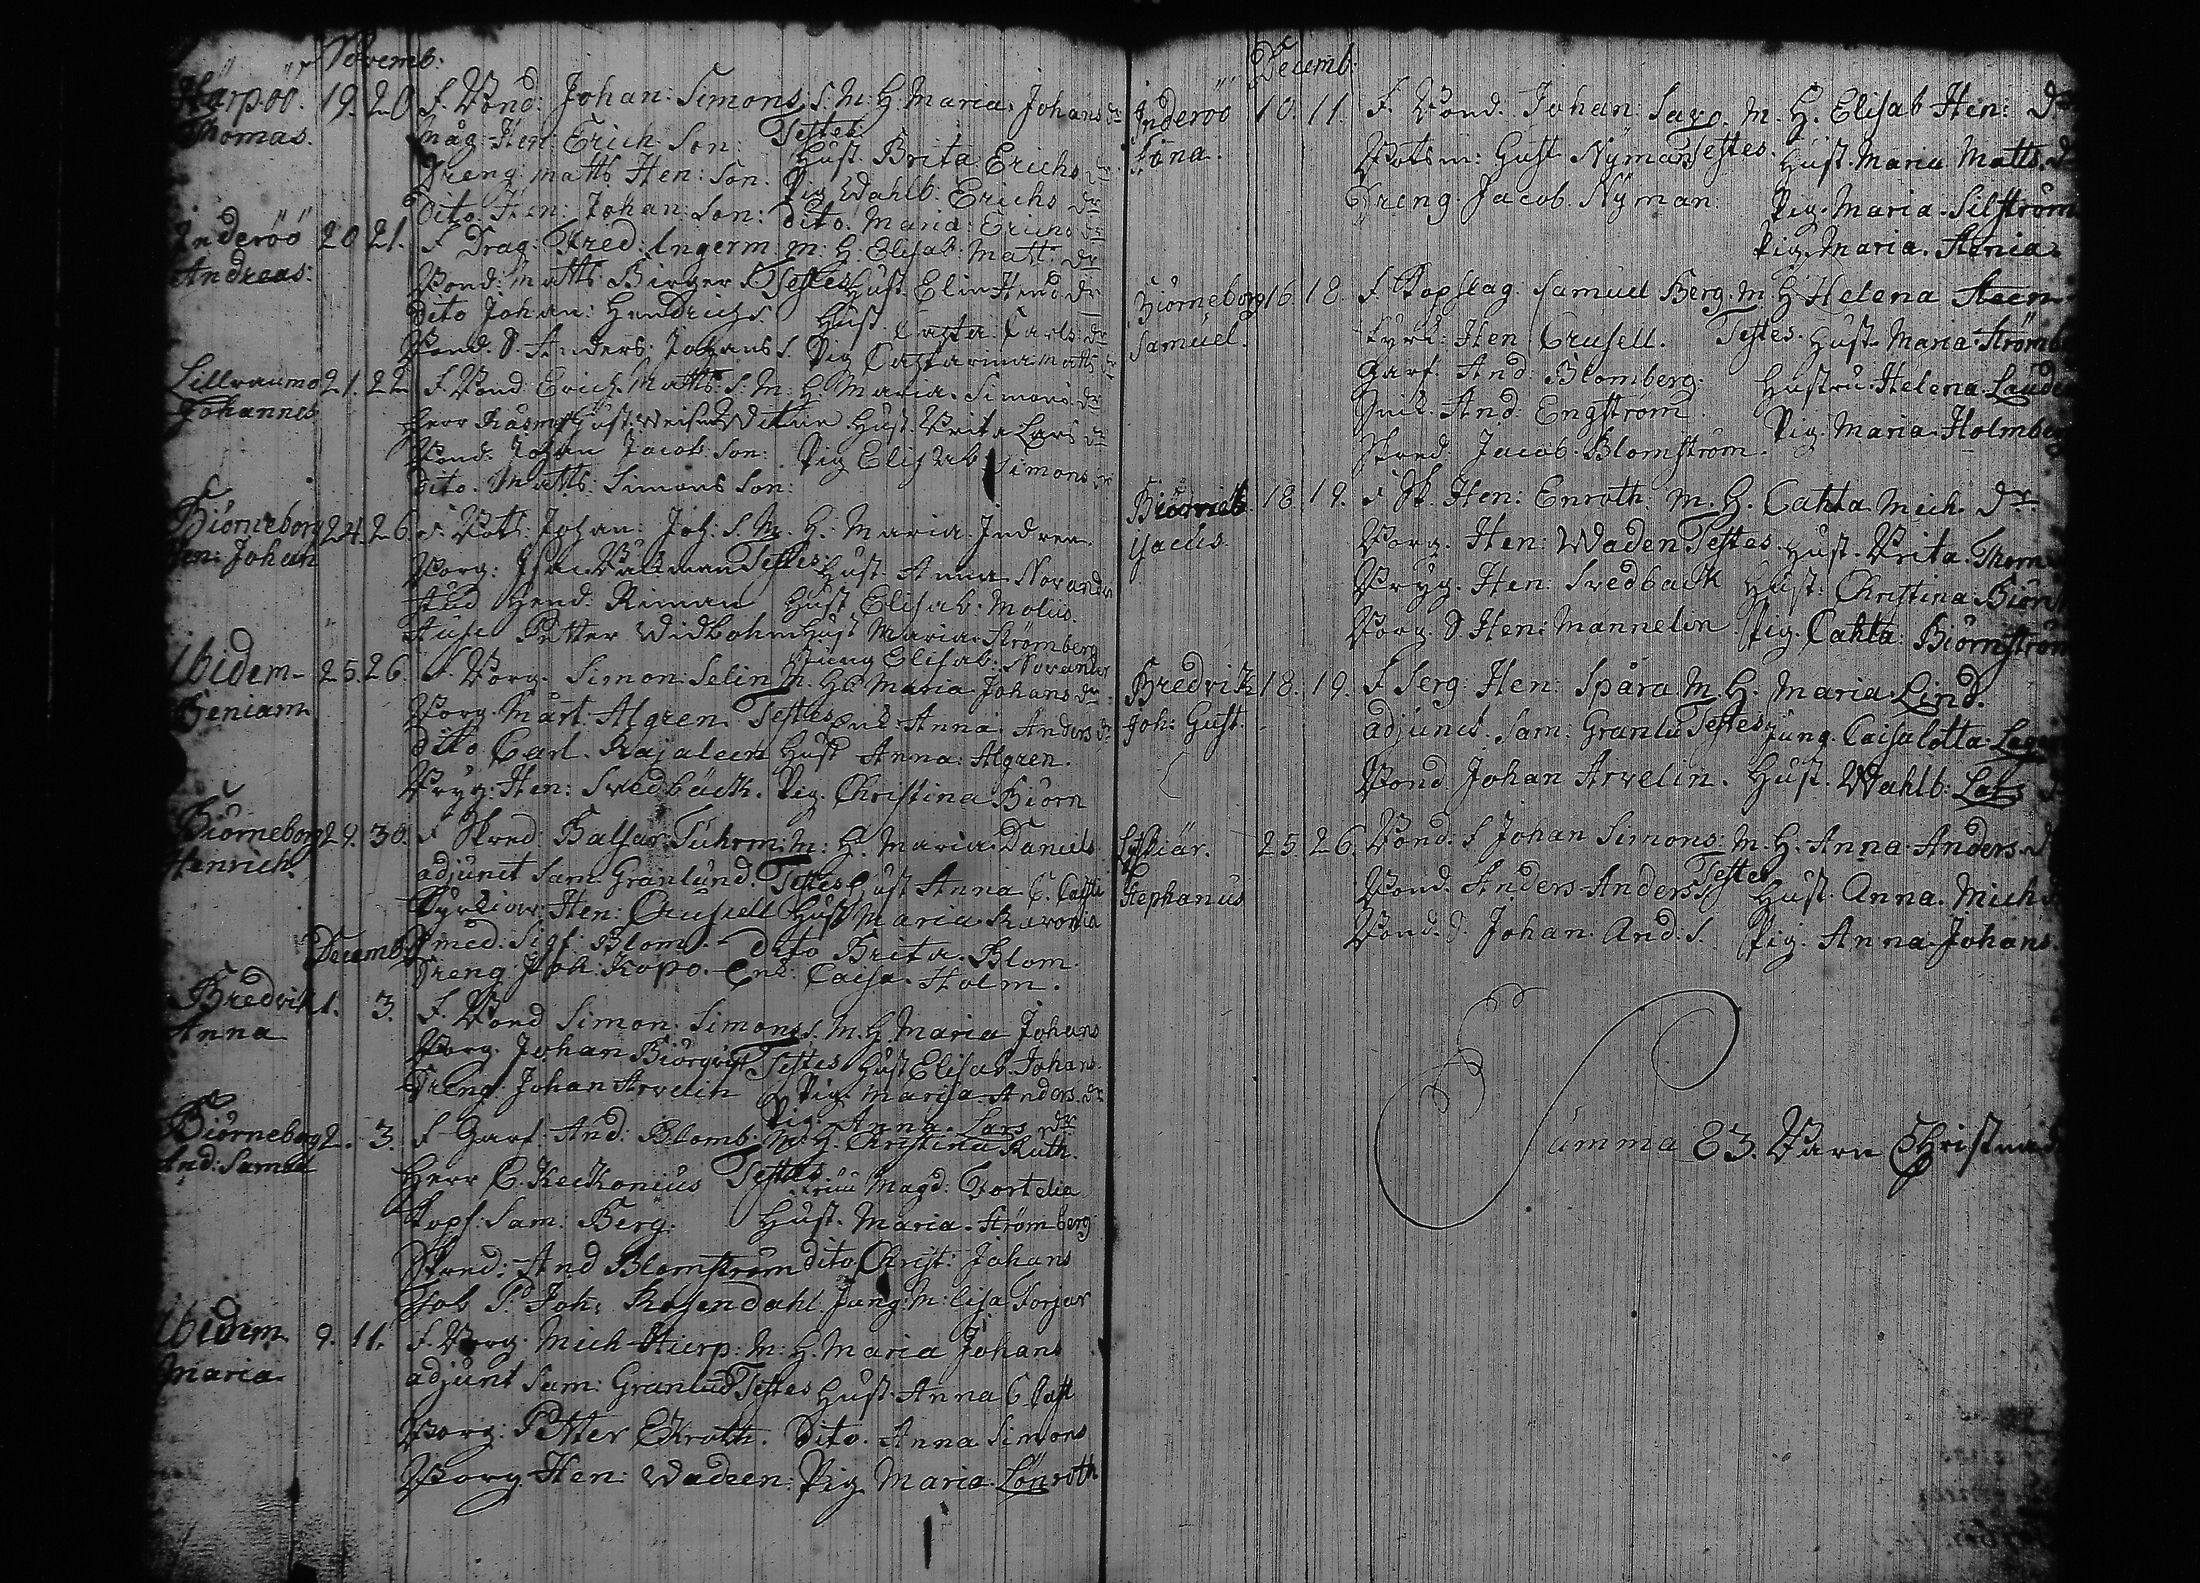 Novemb:
Härpöö. 19. 20 F. Bond: Johan: Simons: S. M. H. Maria. Johans dr
Thomas. måg Hen: Erich Son: Testes Hust. Brita Erichs dr
Dreng matts Hen: Son. Pig Wahlb: Erichs dr
Dito. Hen: Johan: Son: dito. Maria: Erichs dr
Inderöö 20 21. F Drag: Fred: Ingerm: M: H: Elisab: Matt: dr
Andreas: Bond: Matts Birger S. Testes Hust Elin Hend: dr
Dito Johan: Hendrichs. Hust Carls: dr
Bond. S. Anders. Johans S. Pig Catharina matts dr
Lillraumo 21. 22 F Bond Erich Matts: S: M: H: Maria. Simons: dr
Johannes Herr Hust. Brita Lars dr
Bond: Johan Jacob: Son: Pig Elisab Simons dr
Dito. Matts: Simons Son:
Biörneborg 24. 26. F. Bots: Johan: Joh: S. M. H: Maria. Indren.
Hen: Johan Borg: Testes Hust Anna Norander
Stud Hend: Riman Hust Elisab: Molin
Petter Widbohm Hust Maria Strömberg
Jung Elisab: Norander
Ibidem 25. 26. F. Borg. Simon: Selin M. H: Maria Johans dr
Beniam. Borg. Mårt: Algren. Testes Enk: Anna: Anders dr
Dito Carl. Kajaleen Hust Anna: Algren.
Bryg: Hen: Svedbäck. Pig. Christina Biörn
Biörneborg 29. 30. F Skred: Balsar Tuhrm: M: H: Maria Daniels
Henrich. adjunct Sam. Granlund. Testes Hust Anna C.
Hen: Crusell Hust Maria
Decemb Smed: Sigf: Blom. dito Brita. Blom.
Dreng Joh: Kopo. Enk: Caisa. Holm.
Bredvik 1. 3. F. Bond Simon: Simons S. M. H. Maria Johans
Anna Borg. Johan Biörqvist Testes Hust Elisab: Johans
Dreng: Johan Arvelin Pig. Marisa Anders: dr
Pig: Anna. Lars dr
Biörneborg 2. 3. F Garf And: Blomb: M. H. Christina Ruth.
And: Samuel Herr C. Keckonius Testes Fru Magd: Fortelia
Kopf: Sam: Berg. Hust. Maria. Strömberg
Skred: And Blomstrom dito Christ: Johans
Tob S: Joh: Rosendahl. Jung: M: Lisa
Ibidem 9. 11. F. Borg: Mich Hierp: M: H. Maria Johans
Maria. adjunt Sam: Granlud Testes Hust Anna C.
Borg: Petter Ekroth. Dito. Anna Simons
Borg Hen: Wadeen: Pig Maria Lönroth
Decemb:
Inderöö 10. 11. F. Bond. Johan Savo. M. H. Elisab Hen: dr
Botsm: Gust Nyman Testes. Hust. Maria Matts. d
Dreng Jacob. Nyman Pig. Maria. Silström
Pig. Maria.
Biörneborg 16 18. F. Kopslag. Samuel Berg. M H Helena Steen
Samuel. Hen Crusell. Testes. Hust. Maria Strömb
Garf. And: Blomberg. Hustru. Helena
Snik. And: Engström. Pig. Maria. Holmberg
Skred: Jacob. Blomström.
Biörneb 18 19. F Sk. Hen: Enroth. M. H. Cahta Mich dr
Borg. Hen: Waden Testes. Hust. Brita.
Bryg. Hen: Svedback Hust: Christina Biörn
Borg. S. Hen: Mannelin Pig. Cahta Biörnström
Bredvik 18. 19. F Serg: Hen: Spåra M. H. Maria. Lind.
Joh: Gust. adjunct. Sam: Granlu Testes Jung. Caisalotta
Bond Johan Arvelin. Hust. Wahlb: Lars
25. 26. Bond. F Johan Simons: M. H. Anna. Anders. d
Stephanus Bond. Anders Anders S. Testes Hust. Anna. Mich
Bond. S. Johan. And: S. Pig. Anna. Johans.
Summa 83. Barn Christnad